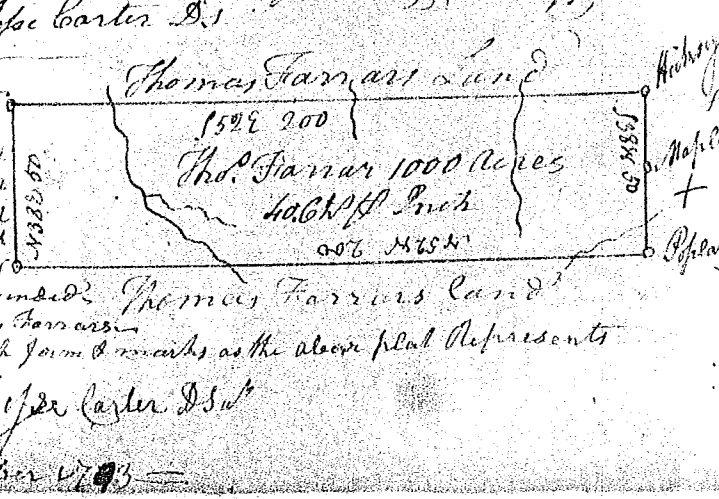 Carter D.S
Thomas Farrars Land
S52E 200
Thos. Farrar 1000 Acres
40.Ch ℔ Inch
N38E 50
S38W 50
N52W 200
Hickory
Maple
Poplar
Thomas Farrars land
Farrars
form & marks as the above plat Represents
Carter DS
1793